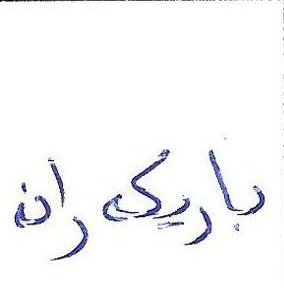 باریک ران